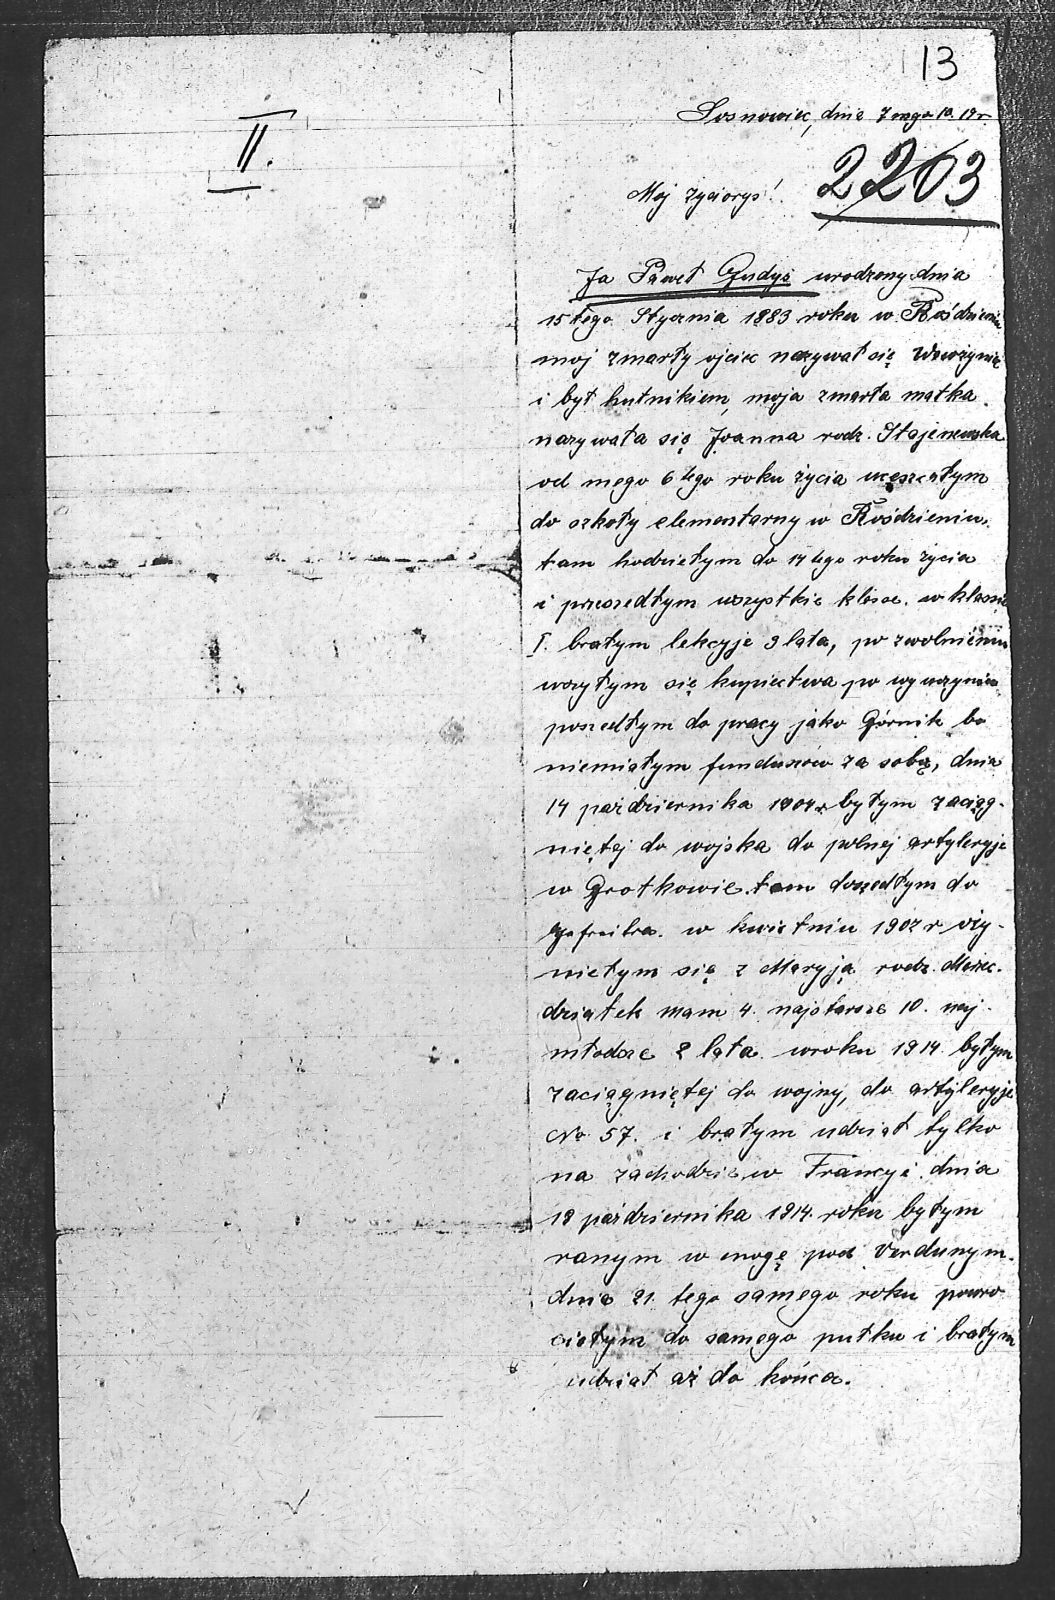 13
Sosnowiec, dnia 7 mego 10. 19 r.
II.
2203
Moj życiorys!
Ja Paweł Gudys urodzony dnia
15 tego Stycznia 1883 roku w Roździeniu
moj zmarły ojciec nazywał się Wawrzyniec
i był hutnikiem, moja zmarła matka
nazywała się Joanna rodz.
od mego 6 tego roku życia uczęszczałym
do szkoły elementarny w Roździeniu,
tam hodziełym do 14 tego roku życia
i przeszedłym wszystkie klase. w klasie
I. brałym lekcyje 3 lata, po zwolnieniu
uczyłym się kupiectwa po wyuczyniu
poszedłym do pracy jako Górnik bo
niemiałym funduszów za sobą, dnia
14 października 1904 r. byłym zaciąg-
niętej do wojska do polnej artyleryje
w Grotkowie. tam doszedłym do
Gefreitra. w kwietniu 1907 r. oży-
niełym się z Maryją rodz.
dziatek mam 4. najstarsze 10. naj-
młodsze 2 lata. wroku 1914 byłym
zaciągniętej do wojny, do artyleryje
No 57. i brałym udział tylko
na zachodzie w Francyi. dnia
19 października 1914. roku byłym
ranym w nogę pod Verdunym.
dnia 21. tego samego roku powro
ciełym do samego pułku i brałym
udział aż do końca.